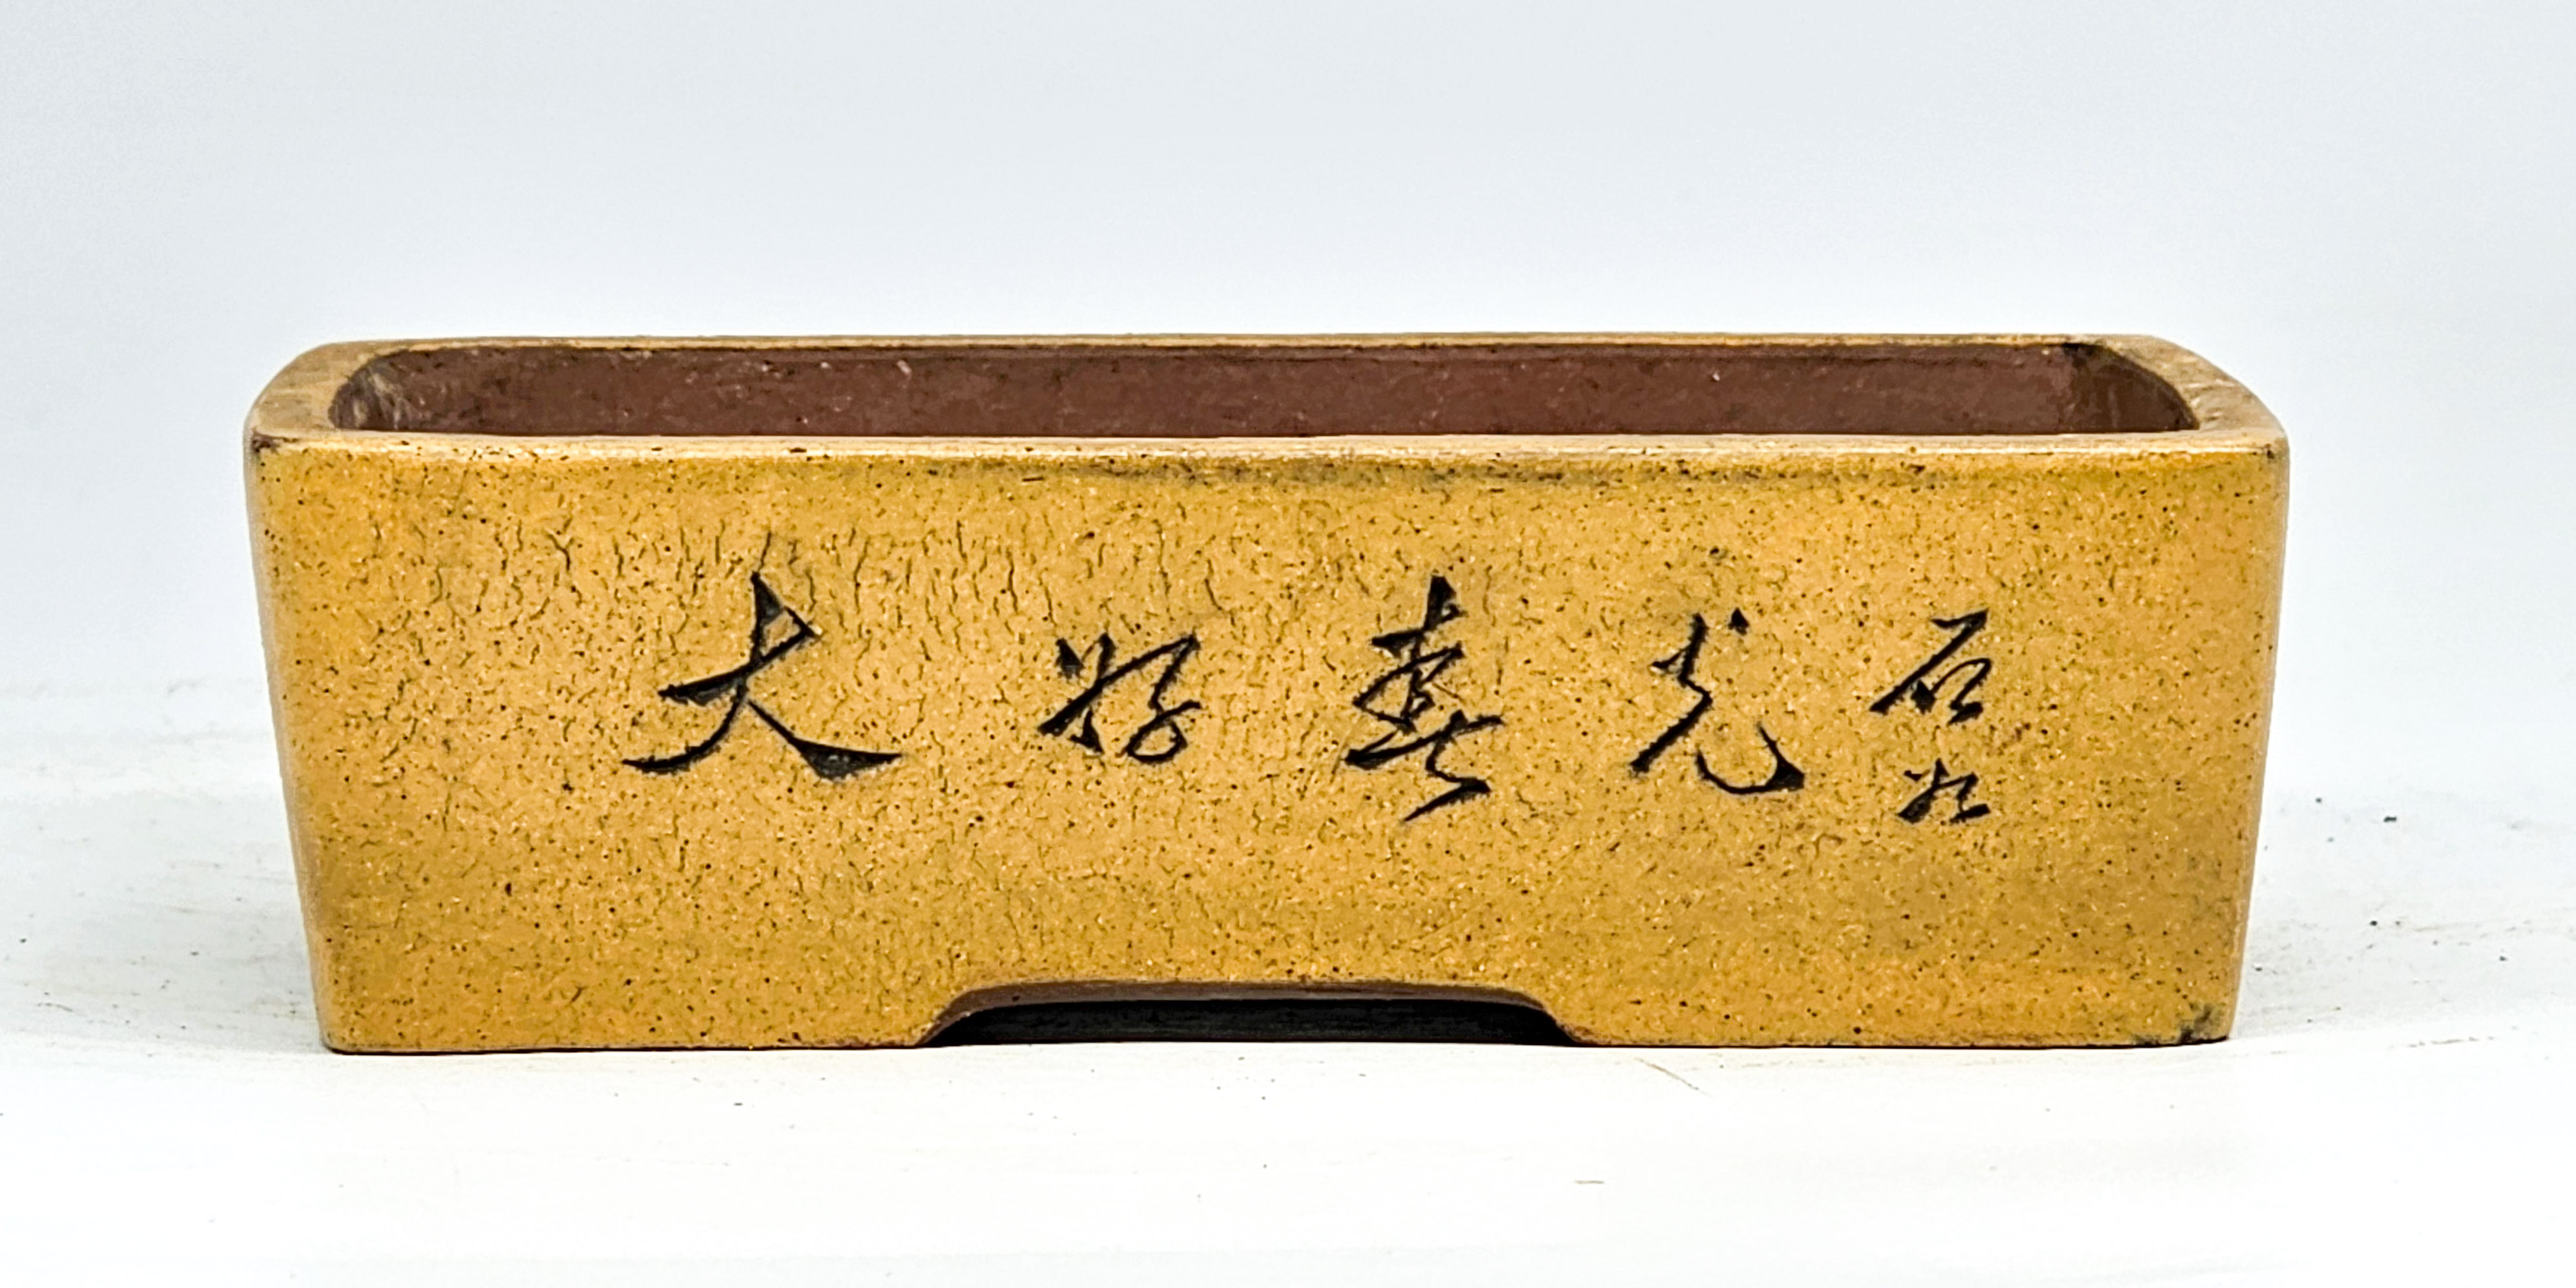 大好春光
石